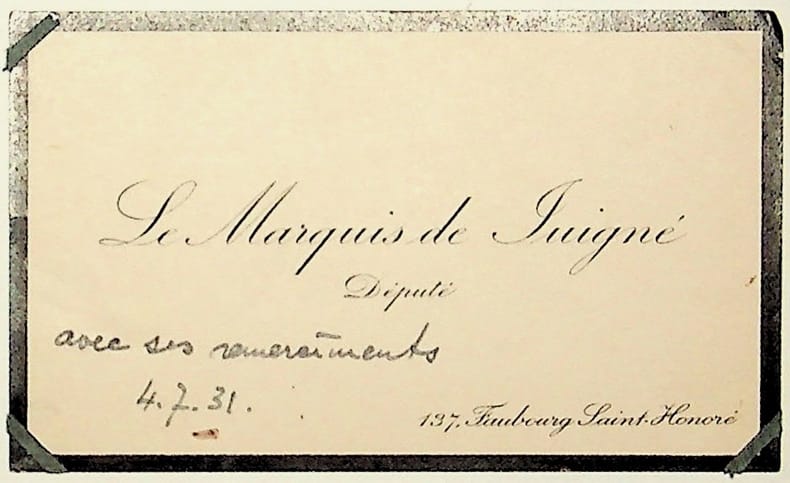 Le Marquis de Juigné
Député
avec ses remerciments
4.7.31.
137, Faubourg Saint-Honoré